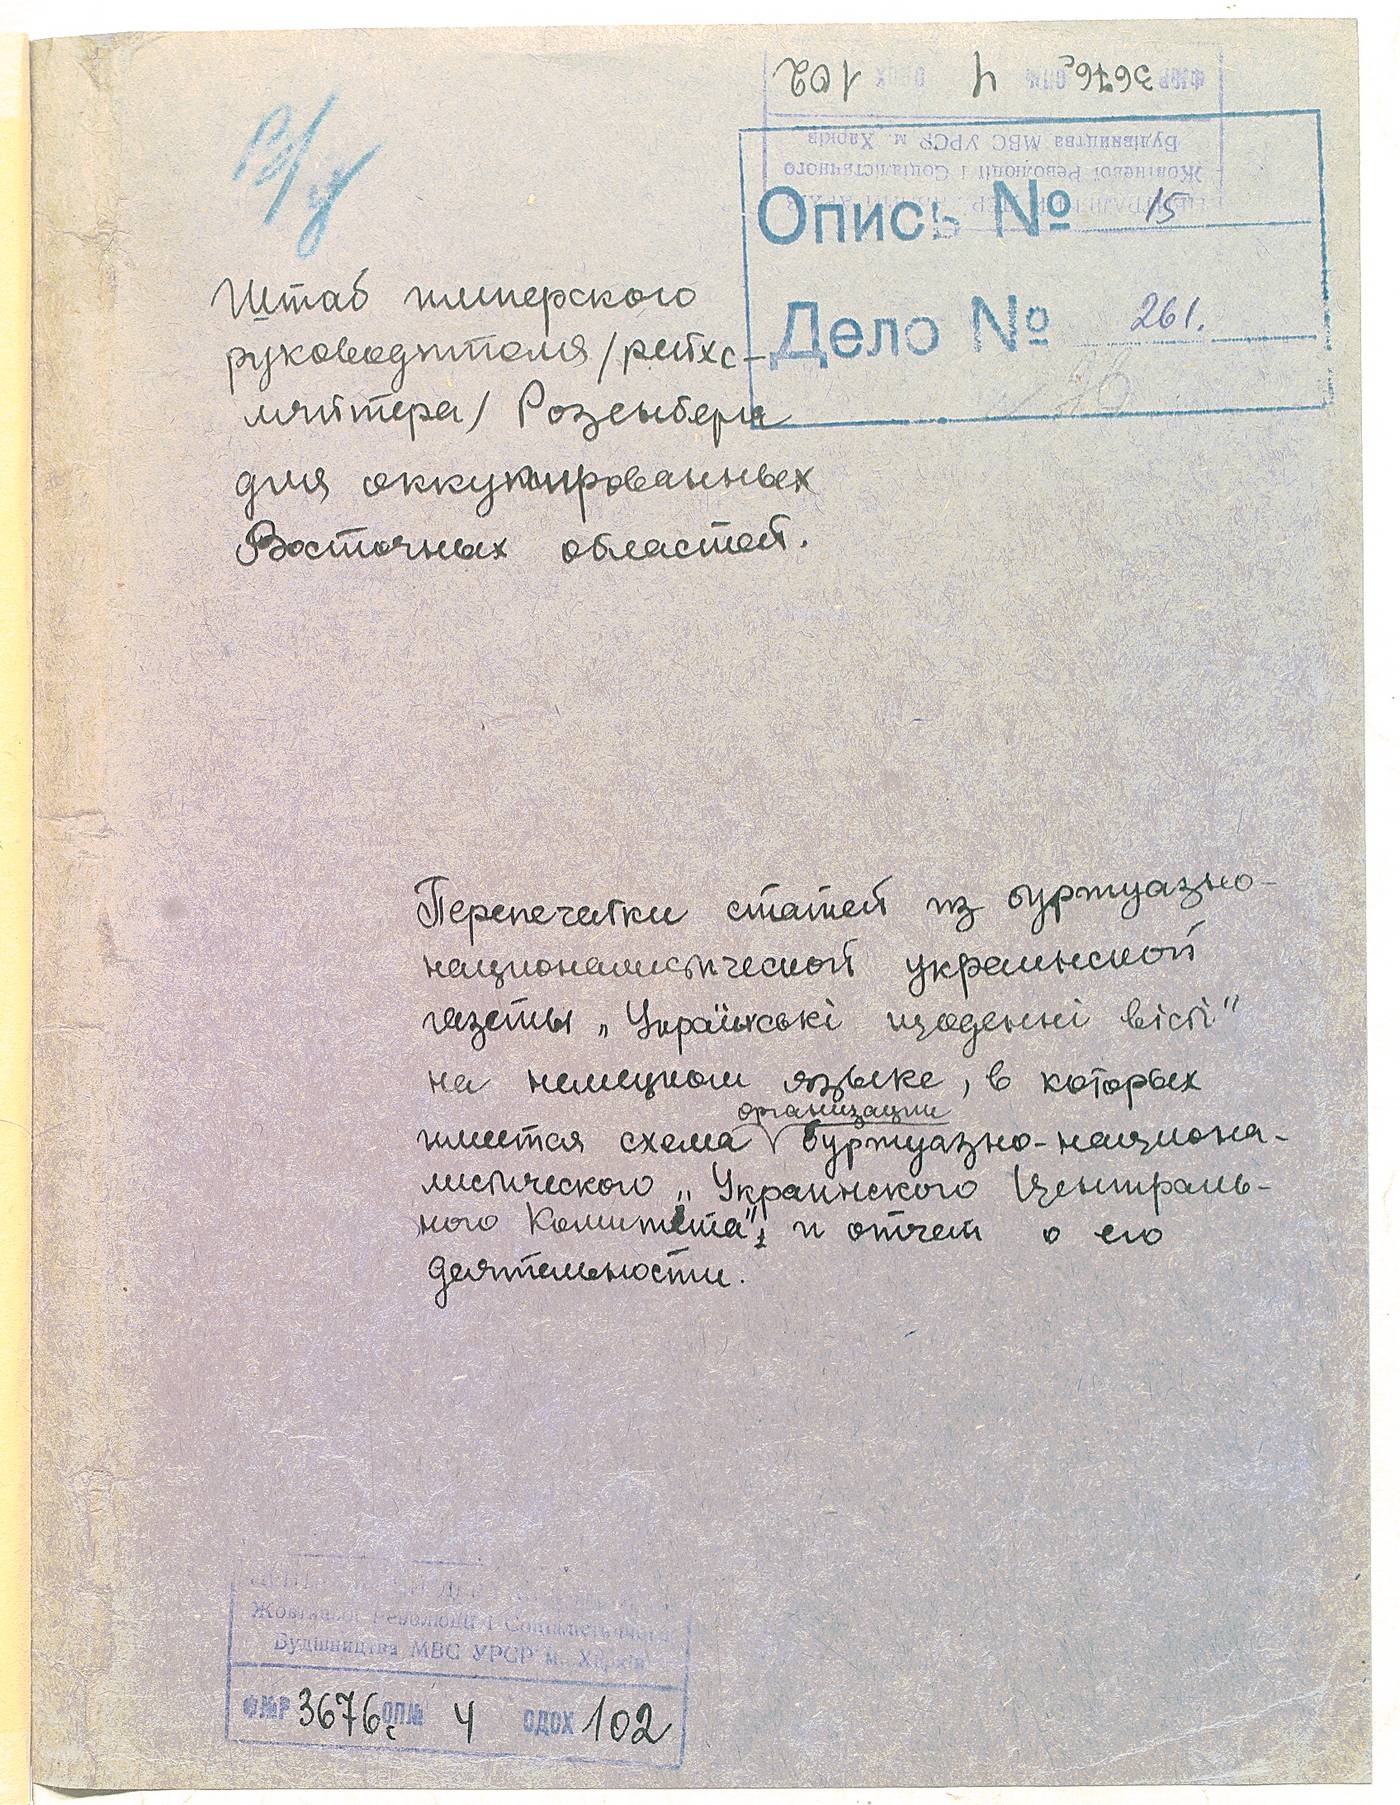 3676с 4 102
Будівництва МВС УРСР м. Харків
Жовтневої Революції і Соціалістичного
Опись № 15
Дело № 261.
Штаб имперского
руководителя /рейхс-
ляйтера/ Розенберга
для оккупированных
Восточных областей.
Перепечатки статей из буржуазно-
националистической украинской
газеты „Українські щоденні вісті"
на немецком языке, в которых
организации
имеется схема буржуазно-национа-
листического „Украинского Централь-
ного Комитета", и отчет о его
деятельности.
Жовтневої Революції і Соціалістичного
Будівництва МВС УРСР м. Харків
Ф№Р 3676с ОП№ 4 ОДОХ 102